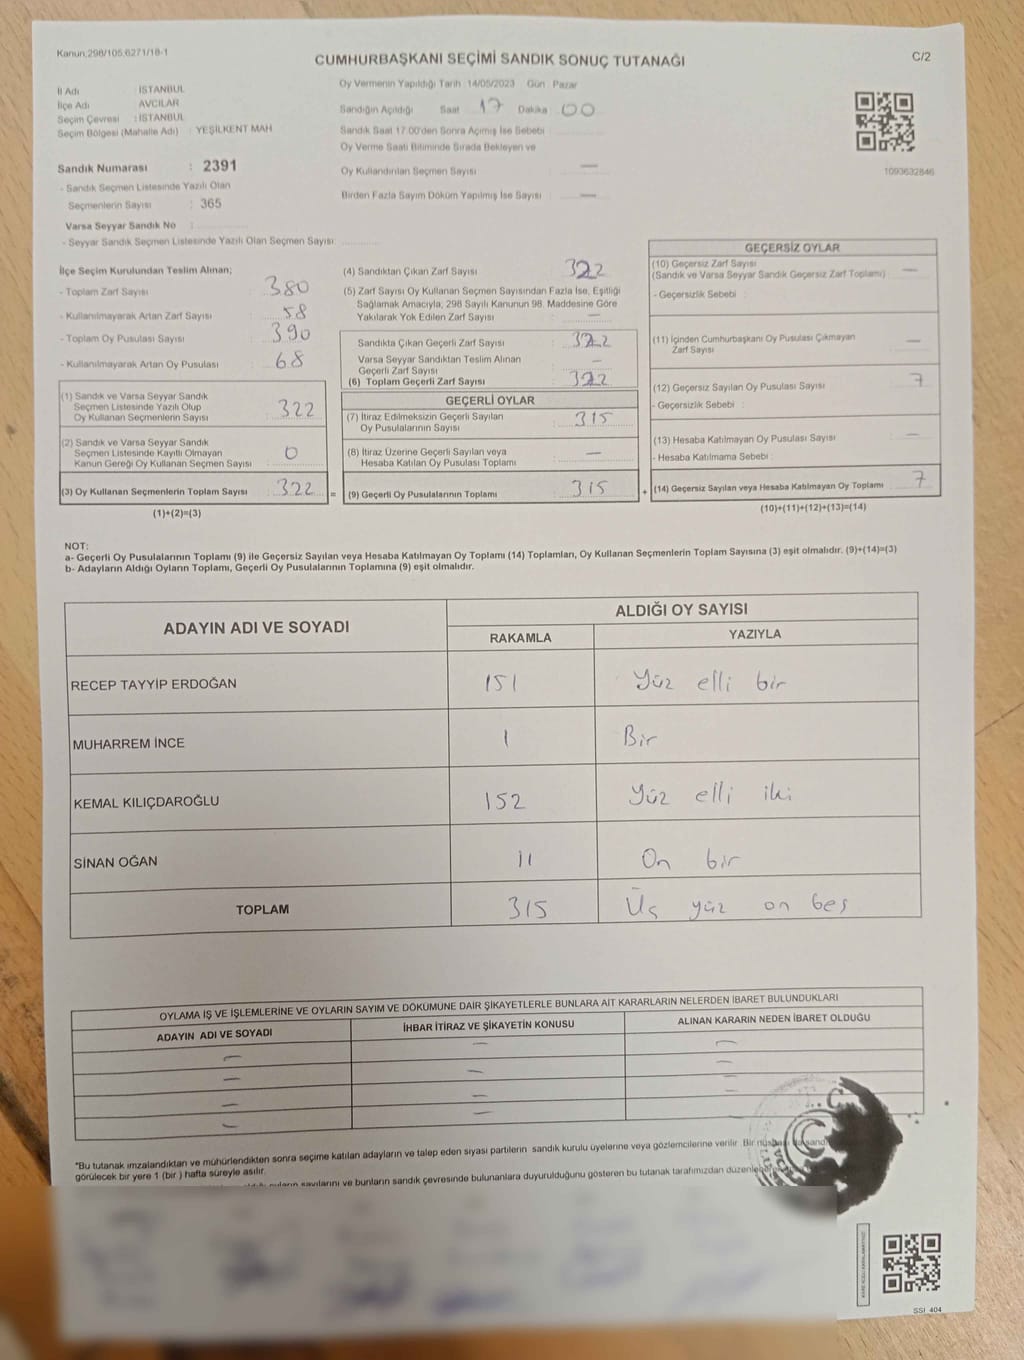 Kanun;298/105,6271/18-1
C/2
CUMHURBAŞKANI SEÇİMİ SANDIK SONUÇ TUTANAĞI
İl Adı : İSTANBUL
İlçe Adı : AVCILAR
Seçim Çevresi : İSTANBUL
Seçim Bölgesi (Mahalle Adı) : YEŞİLKENT MAH
Oy Vermenin Yapıldığı Tarih :14/05/2023 Gün : Pazar
Sandığın Açıldığı Saat : 17 Dakika : 00
Sandık Saat 17.00'den Sonra Açılmış İse Sebebi :
Oy Verme Saati Bitiminde Sırada Bekleyen ve
Oy Kullandırılan Seçmen Sayısı : —
Birden Fazla Sayım Döküm Yapılmış İse Sayısı : —
1093632846
Sandık Numarası : 2391
- Sandık Seçmen Listesinde Yazılı Olan
Seçmenlerin Sayısı : 365
Varsa Seyyar Sandık No :
- Seyyar Sandık Seçmen Listesinde Yazılı Olan Seçmen Sayısı:
İlçe Seçim Kurulundan Teslim Alınan;
- Toplam Zarf Sayısı : 380
- Kullanılmayarak Artan Zarf Sayısı : 58
- Toplam Oy Pusulası Sayısı : 390
- Kullanılmayarak Artan Oy Pusulası : 68
(1) Sandık ve Varsa Seyyar Sandık
Seçmen Listesinde Yazılı Olup
Oy Kullanan Seçmenlerin Sayısı : 322
(2) Sandık ve Varsa Seyyar Sandık
Seçmen Listesinde Kayıtlı Olmayan
Kanun Gereği Oy Kullanan Seçmen Sayısı : 0
(3) Oy Kullanan Seçmenlerin Toplam Sayısı : 322 =
(1)+(2)=(3)
(4) Sandıktan Çıkan Zarf Sayısı : 322
(5) Zarf Sayısı Oy Kullanan Seçmen Sayısından Fazla İse, Eşitliği
Sağlamak Amacıyla, 298 Sayılı Kanunun 98. Maddesine Göre
Yakılarak Yok Edilen Zarf Sayısı : —
Sandıkta Çıkan Geçerli Zarf Sayısı : 322
Varsa Seyyar Sandıktan Teslim Alınan
Geçerli Zarf Sayısı : —
(6) Toplam Geçerli Zarf Sayısı : 322
GEÇERLİ OYLAR
(7) İtiraz Edilmeksizin Geçerli Sayılan
Oy Pusulalarının Sayısı : 315
(8) İtiraz Üzerine Geçerli Sayılan veya
Hesaba Katılan Oy Pusulası Toplamı : —
(9) Geçerli Oy Pusulalarının Toplamı : 315 +
GEÇERSİZ OYLAR
(10) Geçersiz Zarf Sayısı : —
(Sandık ve Varsa Seyyar Sandık Geçersiz Zarf Toplamı)
- Geçersizlik Sebebi :
(11) İçinden Cumhurbaşkanı Oy Pusulası Çıkmayan
Zarf Sayısı : —
(12) Geçersiz Sayılan Oy Pusulası Sayısı : 7
- Geçersizlik Sebebi :
(13) Hesaba Katılmayan Oy Pusulası Sayısı : —
- Hesaba Katılmama Sebebi :
(14) Geçersiz Sayılan veya Hesaba Katılmayan Oy Toplamı : 7
(10)+(11)+(12)+(13)=(14)
NOT:
a- Geçerli Oy Pusulalarının Toplamı (9) ile Geçersiz Sayılan veya Hesaba Katılmayan Oy Toplamı (14) Toplamları, Oy Kullanan Seçmenlerin Toplam Sayısına (3) eşit olmalıdır. (9)+(14)=(3)
b- Adayların Aldığı Oyların Toplamı, Geçerli Oy Pusulalarının Toplamına (9) eşit olmalıdır.
ADAYIN ADI VE SOYADI
ALDIĞI OY SAYISI
RAKAMLA YAZIYLA
RECEP TAYYİP ERDOĞAN 151 Yüz elli bir
MUHARREM İNCE 1 Bir
KEMAL KILIÇDAROĞLU 152 Yüz elli iki
SİNAN OĞAN 11 On bir
TOPLAM 315 Üç yüz on beş
OYLAMA İŞ VE İŞLEMLERİNE VE OYLARIN SAYIM VE DÖKÜMÜNE DAİR ŞİKAYETLERLE BUNLARA AİT KARARLARIN NELERDEN İBARET BULUNDUKLARI
ADAYIN ADI VE SOYADI İHBAR İTİRAZ VE ŞİKAYETİN KONUSU ALINAN KARARIN NEDEN İBARET OLDUĞU
— — —
— — —
— — —
— — —
T.C.
*Bu tutanak imzalandıktan ve mühürlendikten sonra seçime katılan adayların ve talep eden siyasi partilerin sandık kurulu üyelerine veya gözlemcilerine verilir. Bir nüshası da sandı
görülecek bir yere 1 (bir ) hafta süreyle asılır.
sayılarını ve bunların sandık çevresinde bulunanlara duyurulduğunu gösteren bu tutanak tarafımızdan
SSI_404